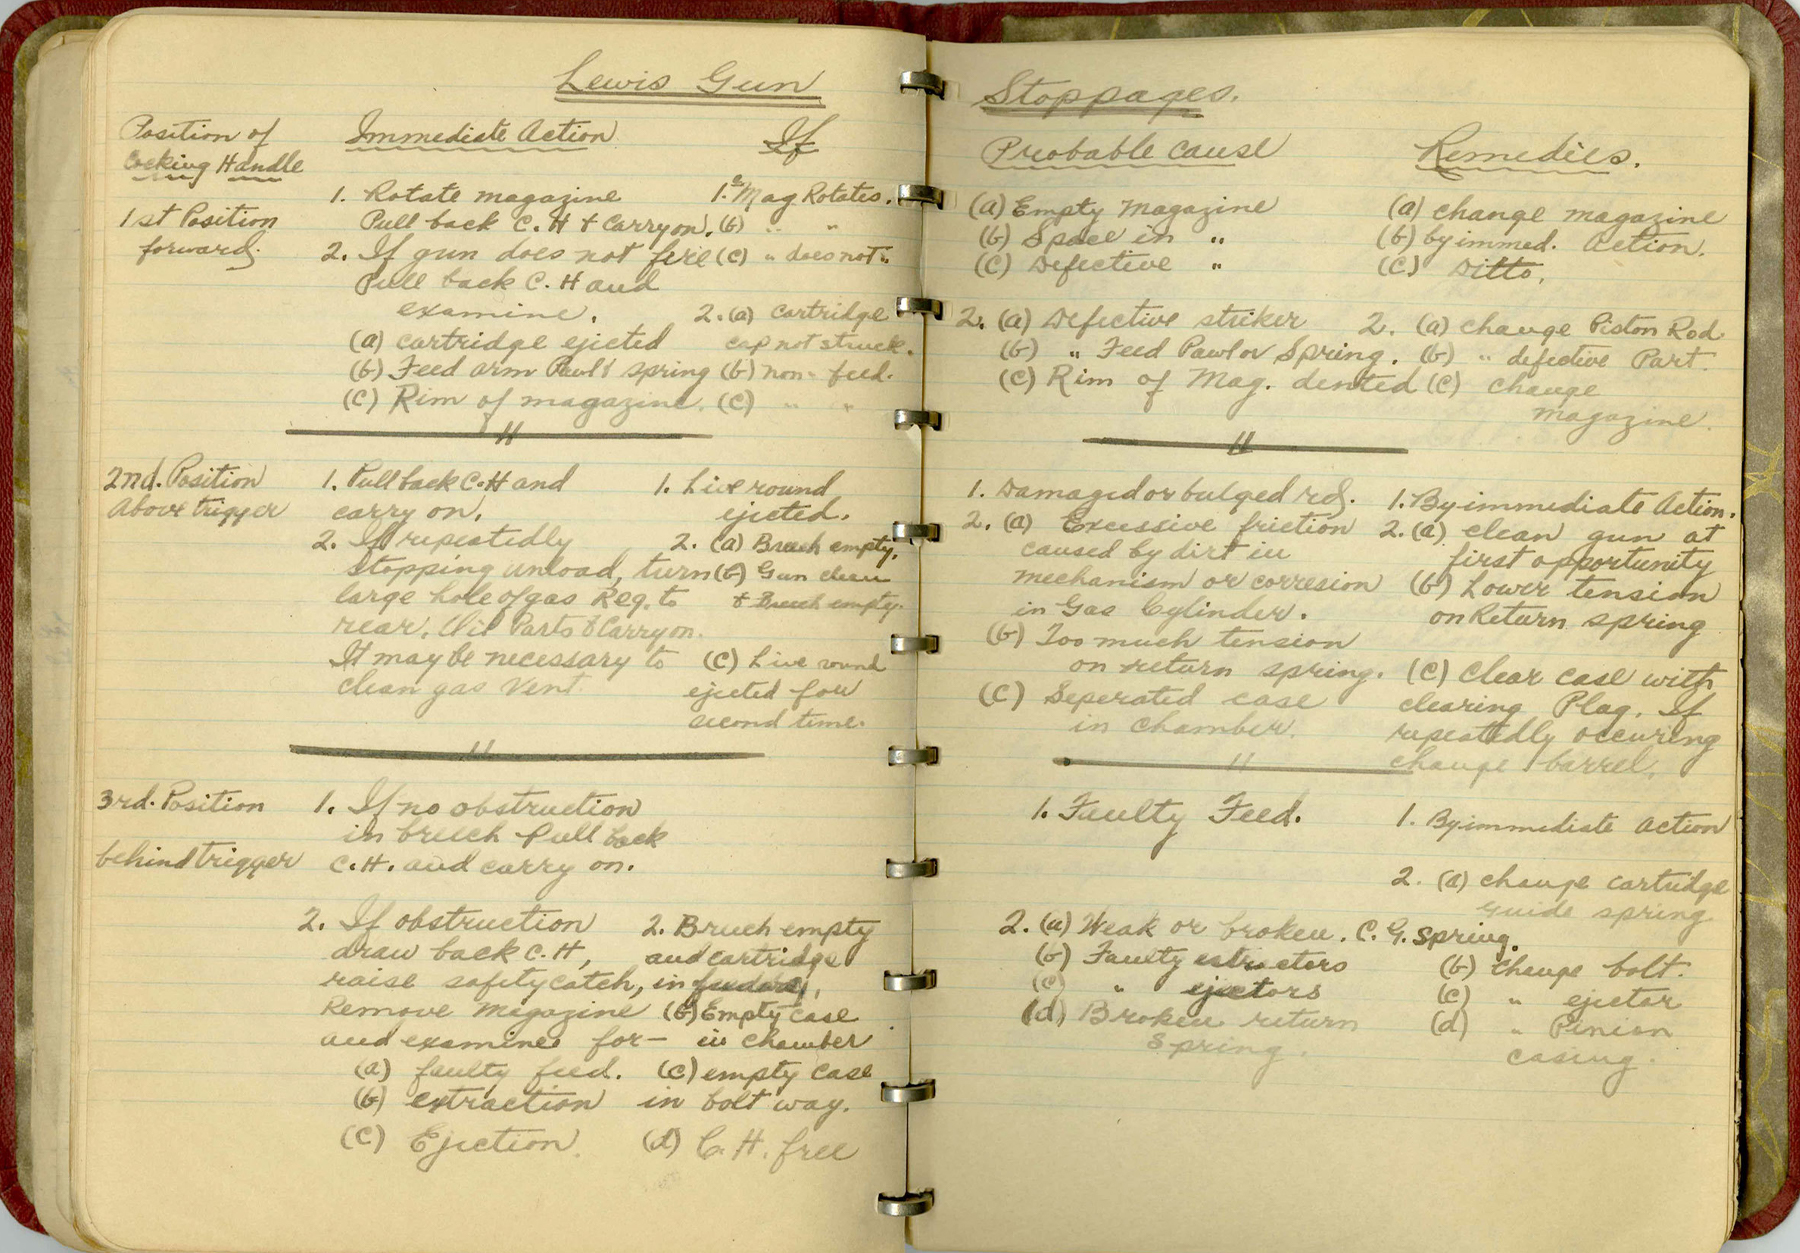 Lewis Gun
Position of
Cocking Handle
Immediate Action
If
1st Position
forward.
1. Rotate magazine
Pull back C. H & Carry on.
2. If gun does not fire
Pull back C. H and
examine.
(a) cartridge ejected
(b) Feed arm Pawl & spring
(c) Rim of magazine.
1. a Mag Rotates.
(b) " "
(c) " does not "
2. (a) cartridge
cap not struck.
(b) non- feed.
(c) " "
2nd. Position
Above trigger
1. Pull back C. H and
carry on.
2. If repeatedly
stopping unload, turn
large hole of gas Reg. to
rear. Oil Parts & Carry on.
It may be necessary to
clean gas vent.
1. Live round
ejected.
2. (a) Breech empty.
(b) Gun clean
& Breech empty.
(c) Live round
ejected for
second time.
3rd. Position
behind trigger
1. If no obstruction
in breech Pull back
C. H. and carry on.
2. If obstruction
draw back C. H,
raise safety catch,
Remove Magazine
and examine for-
(a) faulty feed.
(b) extraction
(c) Ejection.
2. Breech empty
and cartridge
in
(b) Empty case
in chamber
(c) empty case
in bolt way.
(d) C. H. free
Stoppages.
Probable cause
Remedies.
(a) Empty Magazine
(b) Space in "
(c) Defective "
(a) change magazine
(b) by immed. Action.
(c) Ditto.
2. (a) Defective striker
(b) " Feed Pawl or Spring.
(c) Rim of Mag. dented
2. (a) change Piston Rod
(b) " defective Part.
(c) change
magazine.
1. Damaged or bulged rd.
2. (a) Excessive friction
caused by dirt in
mechanism or corresion
in Gas Cylinder.
(b) Too much tension
on return spring.
(c) Seperated case
in chamber.
1. By immediate Action.
2. (a) clean gun at
first opportunity
(b) Lower tension
on Return spring
(c) clear case with
clearing Plug. If
repeatedly occuring
change barrel.
1. Faulty Feed.
1. By immediate action
2. (a) Weak or broken. C. G. spring.
(b) Faulty
(c) " ejectors
(d) Broken return
spring.
2. (a) change cartridge
guide spring
(b) change bolt.
(c) " ejector
(d) " Pinion
casing.